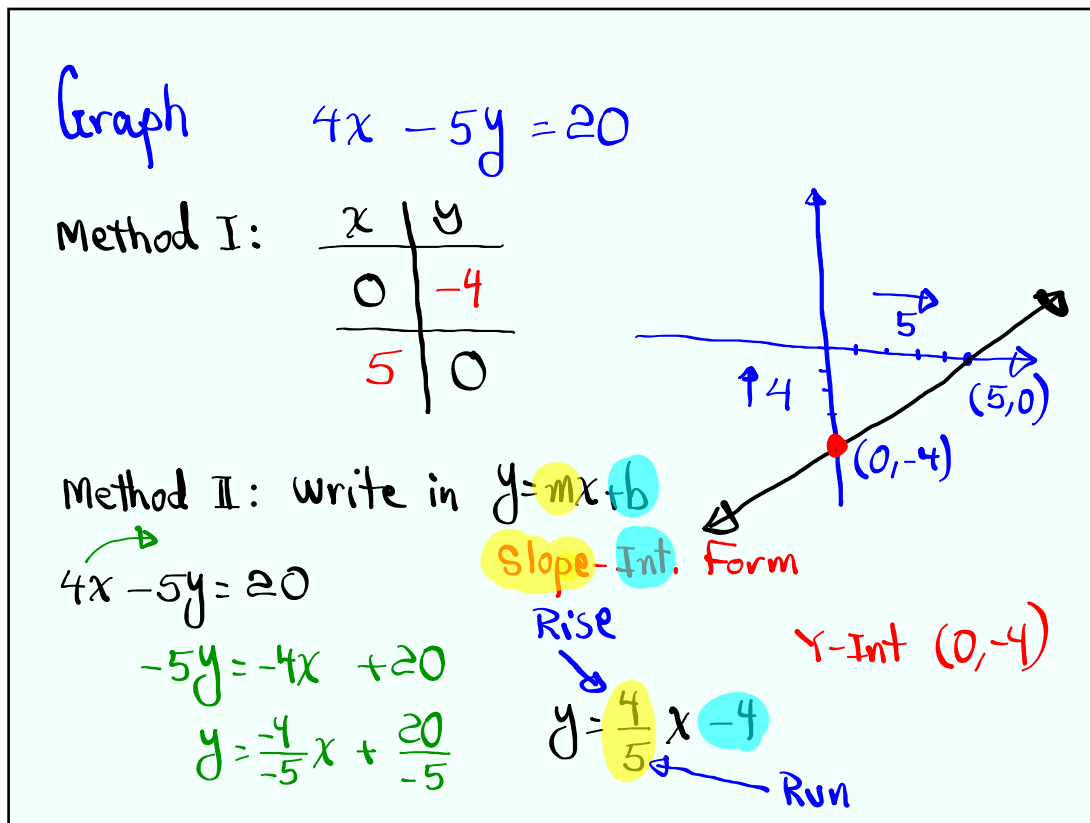 Graph 4x - 5y = 20
Method I:
x | y
0 | -4
5 | 0
5
↑ 4
(5,0)
(0,-4)
Method II: write in y=mx+b
Slope-Int. Form
4x - 5y = 20
-5y = -4x + 20
y = -4/-5 x + 20/-5
Rise
y = 4/5 x - 4
Run
Y-Int (0,-4)